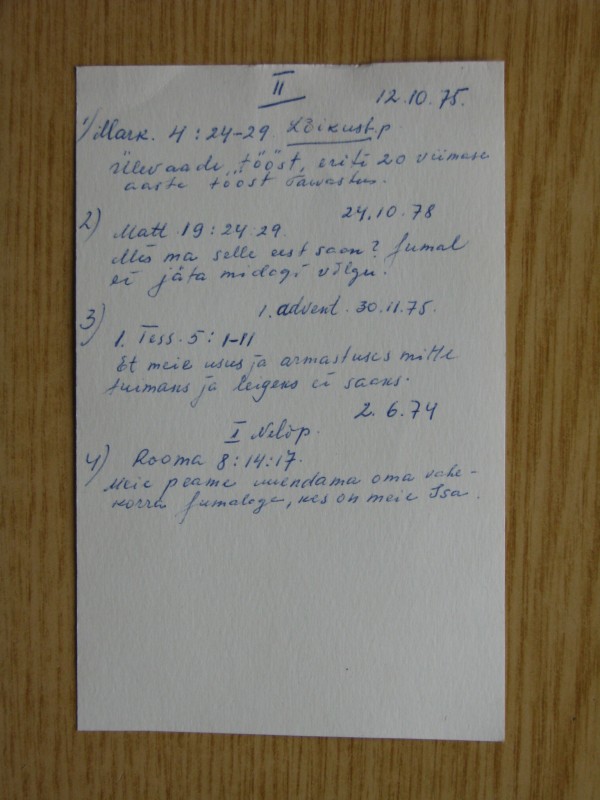 II
12.10.75.
1) Mark. 4:24-29 Lõikust.p.
Ülevaade tööst, eriti 20 viimase
aasta tööst
24.10.78
2) Matt 19:24-29.
Mis ma selle eest saan? Jumal
ei jäta midagi võlgu.
1. advent. 30.11.75.
3)
1. Tess. 5:1-11
Et meie usus ja armastuses mitte
tuimaks ja leigeks ei saaks.
2.6.74
I Nelip.
4) Rooma 8:14:17.
Meie peame uuendama oma vahe-
korra Jumalaga, kes on meie Isa.